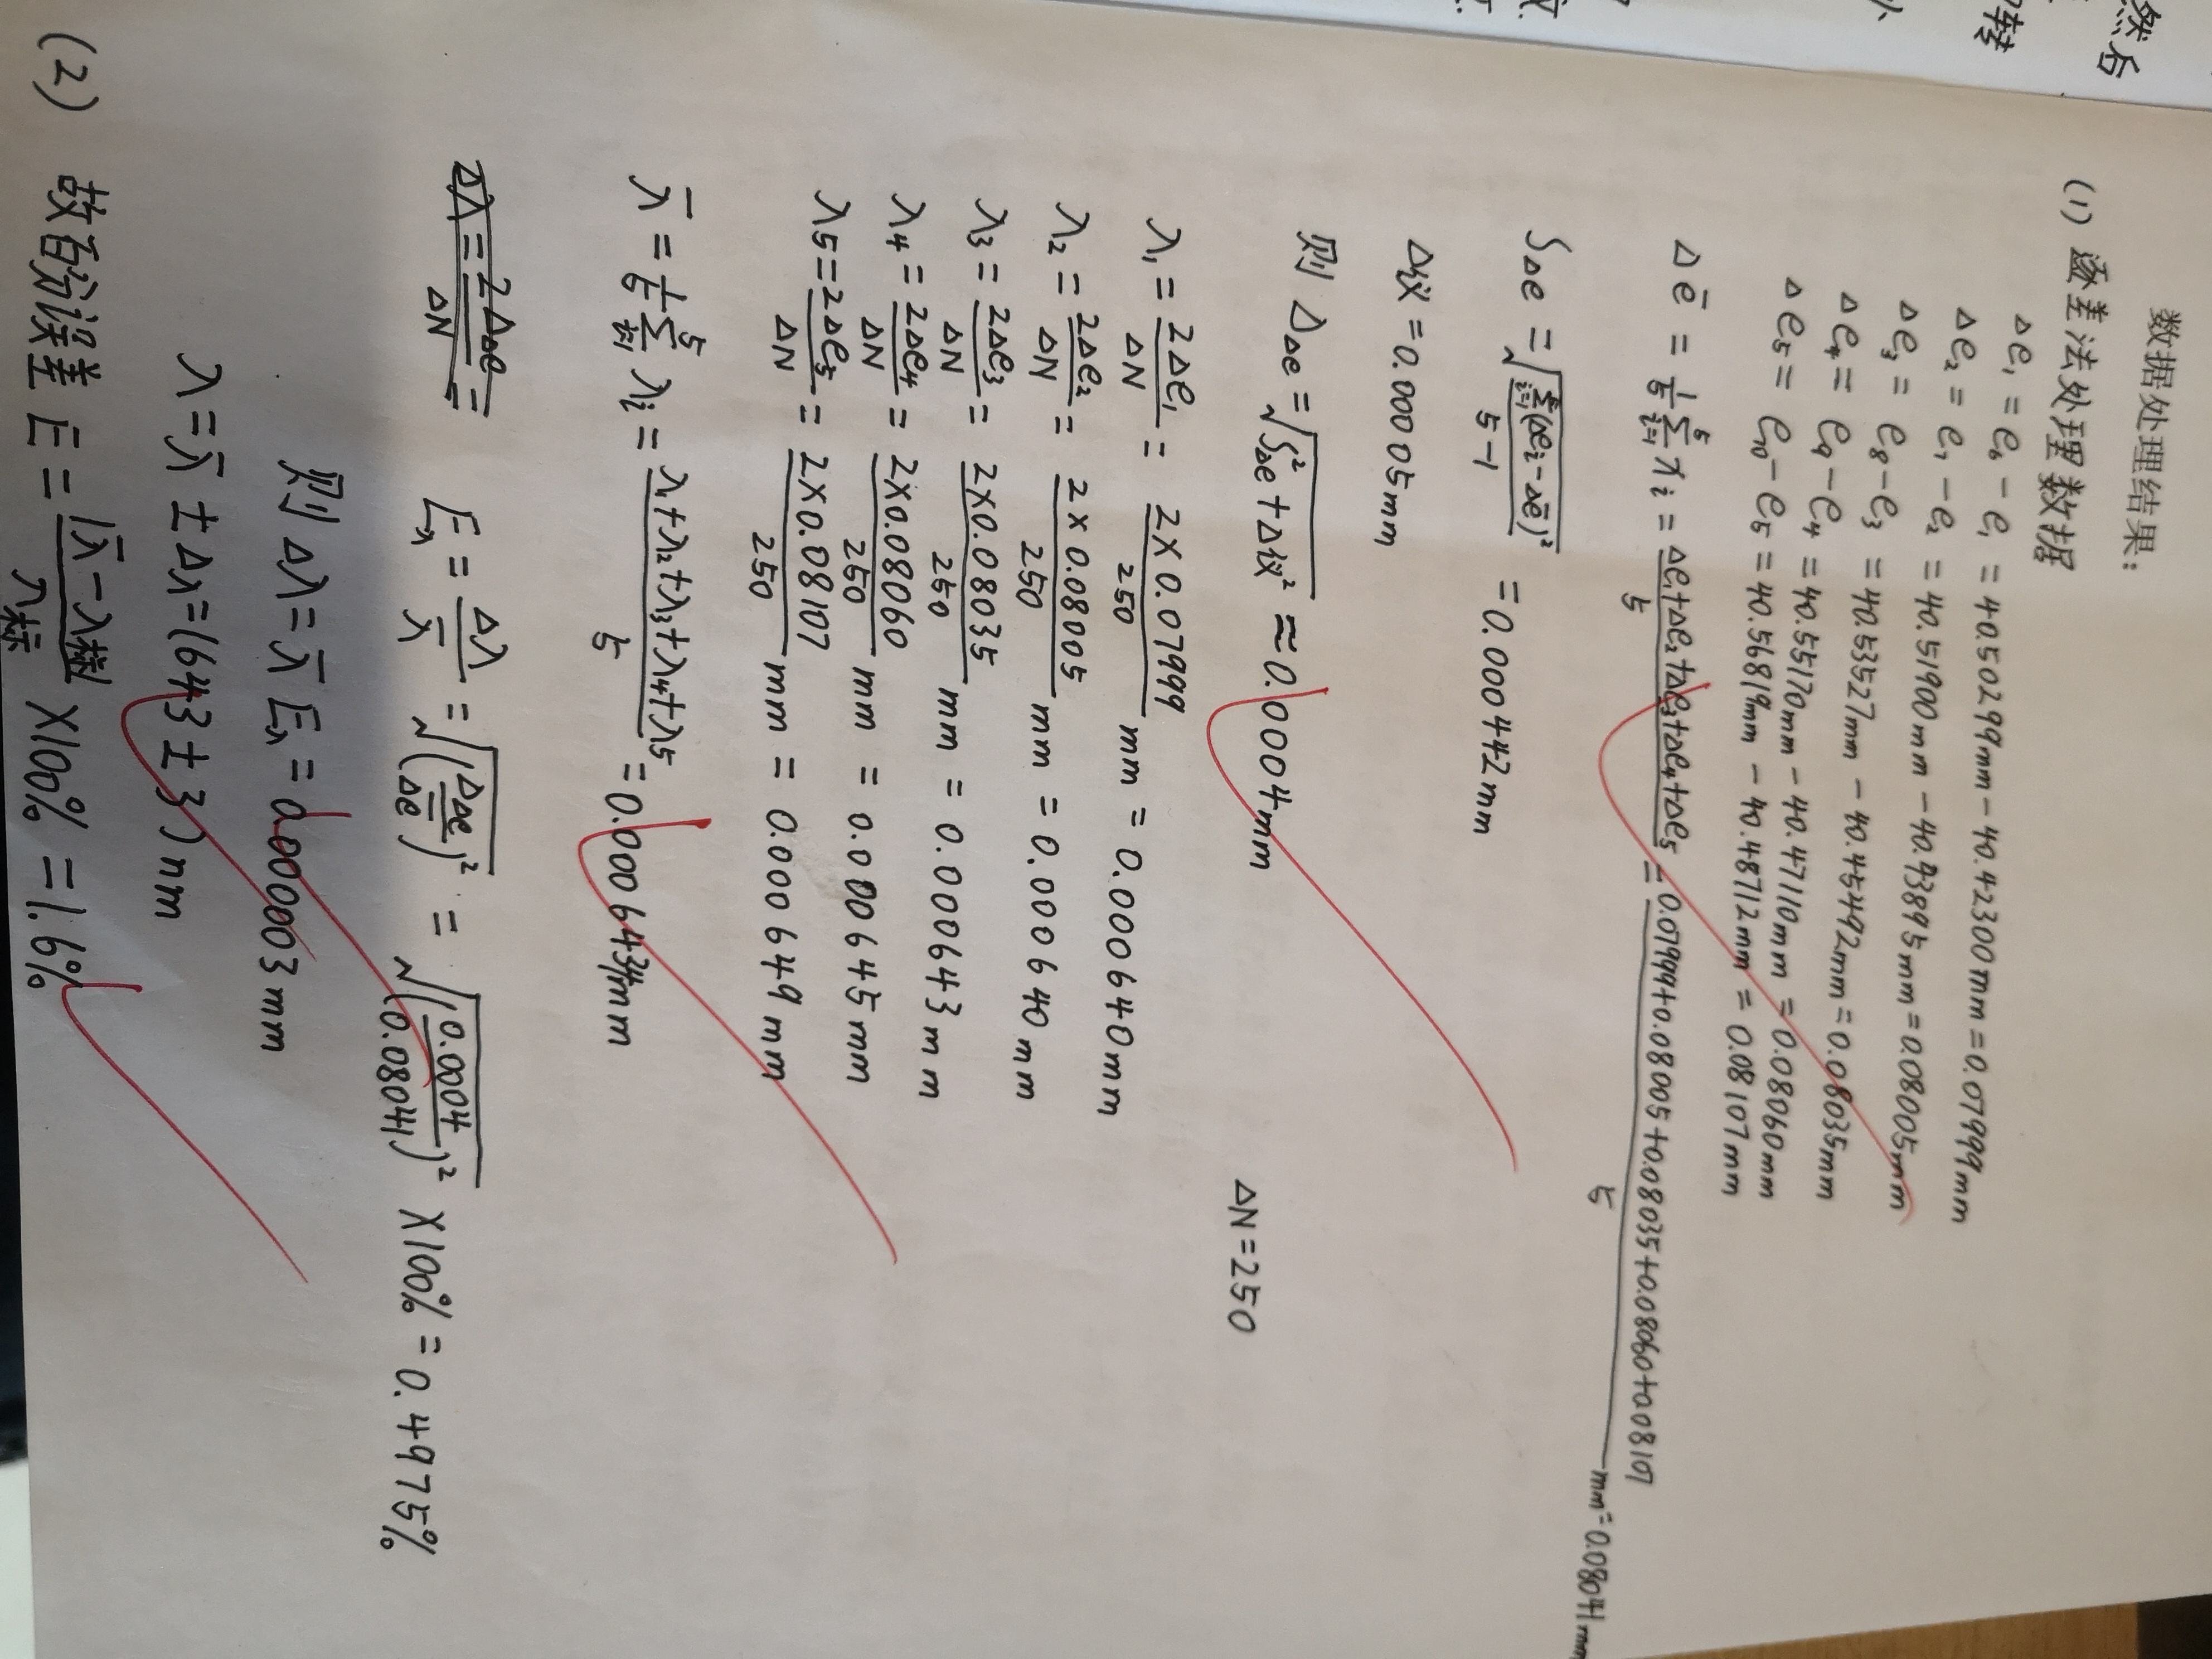 然后
转
小
数据处理结果:
(1) 逐差法处理数据
Δe₁ = e₆ - e₁ = 40.50299mm - 40.42300mm = 0.07999mm
Δe₂ = e₇ - e₂ = 40.51900mm - 40.43895mm = 0.08005mm
Δe₃ = e₈ - e₃ = 40.53527mm - 40.45492mm = 0.08035mm
Δe₄ = e₉ - e₄ = 40.55170mm - 40.47110mm = 0.08060mm
Δe₅ = e₁₀ - e₅ = 40.56819mm - 40.48712mm = 0.08107mm
Δē = 1/5 Σ(i=1→5) xᵢ = (Δe₁+Δe₂+Δe₃+Δe₄+Δe₅)/5 = (0.07999+0.08005+0.08035+0.08060+0.08107)/5 mm = 0.08041mm
SΔe = √(Σ(i=1→5)(Δeᵢ-Δē)²/(5-1)) = 0.000442mm
Δ仪 = 0.00005mm
则 ΔΔe = √(S²Δe + Δ仪²) ≈ 0.0004mm
ΔN=250
λ₁ = 2Δe₁/ΔN = 2×0.07999/250 mm = 0.000640mm
λ₂ = 2Δe₂/ΔN = 2×0.08005/250 mm = 0.000640mm
λ₃ = 2Δe₃/ΔN = 2×0.08035/250 mm = 0.000643mm
λ₄ = 2Δe₄/ΔN = 2×0.08060/250 mm = 0.000645mm
λ₅ = 2Δe₅/ΔN = 2×0.08107/250 mm = 0.000649mm
λ̄ = 1/5 Σ(i=1→5) λᵢ = (λ₁+λ₂+λ₃+λ₄+λ₅)/5 = 0.000643mm
Eλ = Δλ/λ̄ = √((ΔΔe/Δē)²) = √((0.0004/0.08041)²) ×100% = 0.4975%
则 Δλ = λ̄ Eλ = 0.000003mm
λ = λ̄ ± Δλ = (643 ± 3) nm
(2) 故百分误差 E = |λ̄-λ标|/λ标 ×100% = 1.6%